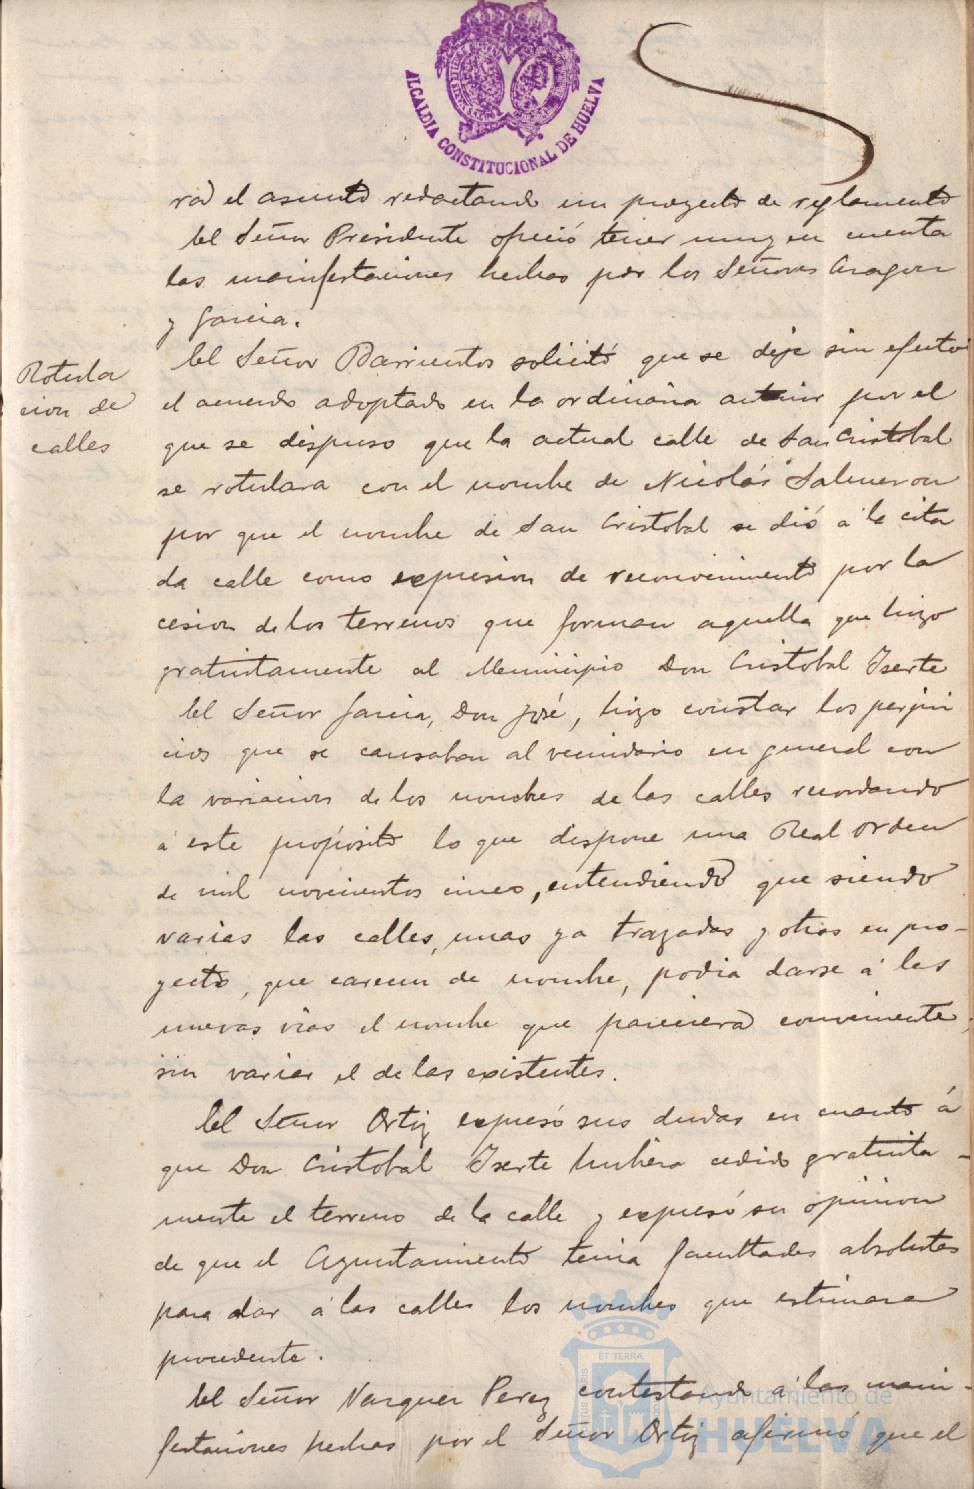 ALCALDIA CONSTITUCIONAL DE HUELVA
rá el asunto redactando un proyecto de reglamento
El Señor Presidente ofreció tener muy en cuenta
las manifestaciones hechas por los Señores Aragon
y Garcia.
Rotula
cion de
calles
El Señor Barrientos solicitó que se deje sin efecto
el acuerdo adoptado en la ordinaria anterior por el
que se dispuso que la actual calle de San Cristobal
se rotulara con el nombre de Nicolás Salmeron
por que el nombre de San Cristobal se dió a la cita
da calle como expresion de reconocimiento por la
cesion de los terrenos que forman aquella que hizo
gratuitamente al Municipio Don Cristobal Iserte
El Señor Garcia, Don José, hizo constar los perjui
cios que se causaban al vecindario en general con
la variacion de los nombres de las calles recordando
a este propósito lo que dispone una Real orden
de mil novecientos cinco, entendiendo que siendo
varias las calles, unas ya trazadas y otras en pro-
yecto, que carecen de nombre, podia darse á las
nuevas vias el nombre que pareciera conveniente,
sin variar el de las existentes.
El Señor Ortiz expresó sus dudas en cuanto á
que Don Cristobal Iserte hubiera cedido gratuita-
mente el terreno de la calle y expresó su opinion
de que el Ayuntamiento tenia facultades absolutas
para dar á las calles los nombres que estimara
procedente.
El Señor Vazquez Perez contestando á las mani-
festaciones hechas por el Señor Ortiz afirmó que el
ET TERRÆ
Ayuntamiento de
HUELVA